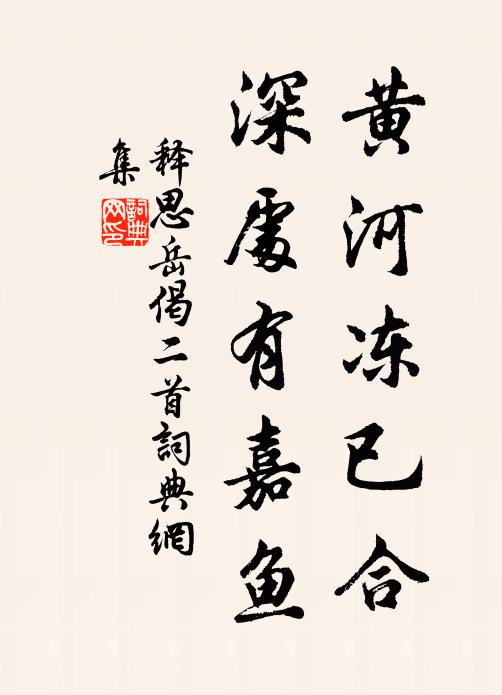 黄河冻已合
深處有嘉鱼
释思岳偈二首詞典網
集
詞典網印